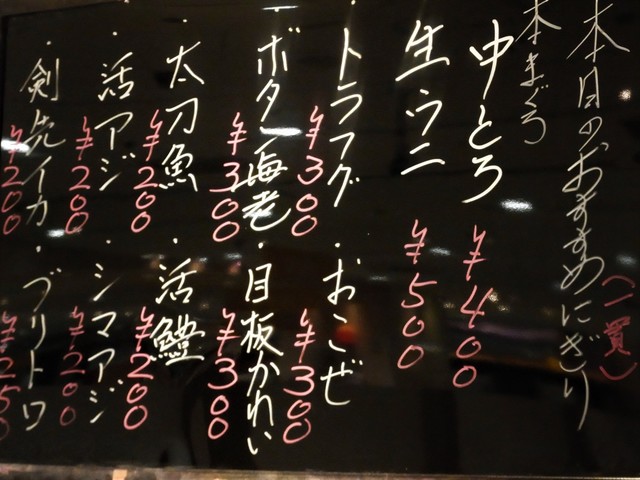 本日のおすすめにぎり(一貫)
本まぐろ
中とろ ¥400
生ウニ ¥500
・トラフグ ¥300
・おこぜ ¥300
・ボタン海老 ¥300
・目板かれい ¥300
・太刀魚 ¥200
・活鱧 ¥200
・活アジ ¥200
・シマアジ ¥200
・剣先イカ ¥200
・ブリトロ ¥250